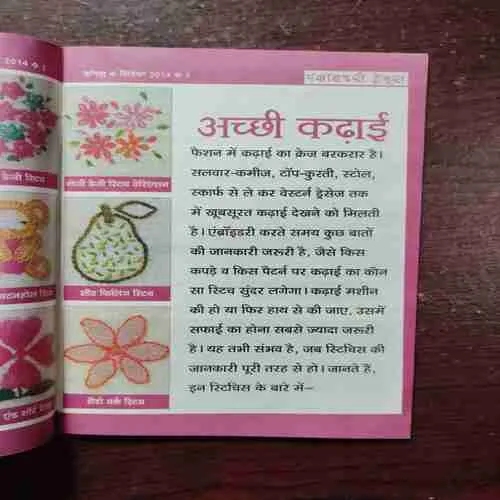 2014
वनिता • सितंबर 2014 •
एंब्रॉयडरी ट्रेंड्स
अच्छी कढ़ाई
फैशन में कढ़ाई का क्रेज बरकरार है।
सलवार-कमीज, टॉप-कुरती, स्टोल,
स्कार्फ से ले कर वेस्टर्न ड्रेसेज तक
में खूबसूरत कढ़ाई देखने को मिलती
है। एंब्रॉइडरी करते समय कुछ बातों
की जानकारी जरूरी है, जैसे किस
कपड़े व किस पैटर्न पर कढ़ाई का कौन
सा स्टिच सुंदर लगेगा। कढ़ाई मशीन
की हो या फिर हाथ से की जाए, उसमें
सफाई का होना सबसे ज्यादा जरूरी
है। यह तभी संभव है, जब स्टिचिस की
जानकारी पूरी तरह से हो। जानते हैं,
इन स्टिचिस के बारे में–
क्रेजी स्टिच
लेजी डेजी स्टिच वेरिएशन
बटनहोल स्टिच
सीड फिलिंग स्टिच
एंड शॉर्ट
शैडो वर्क स्टिच